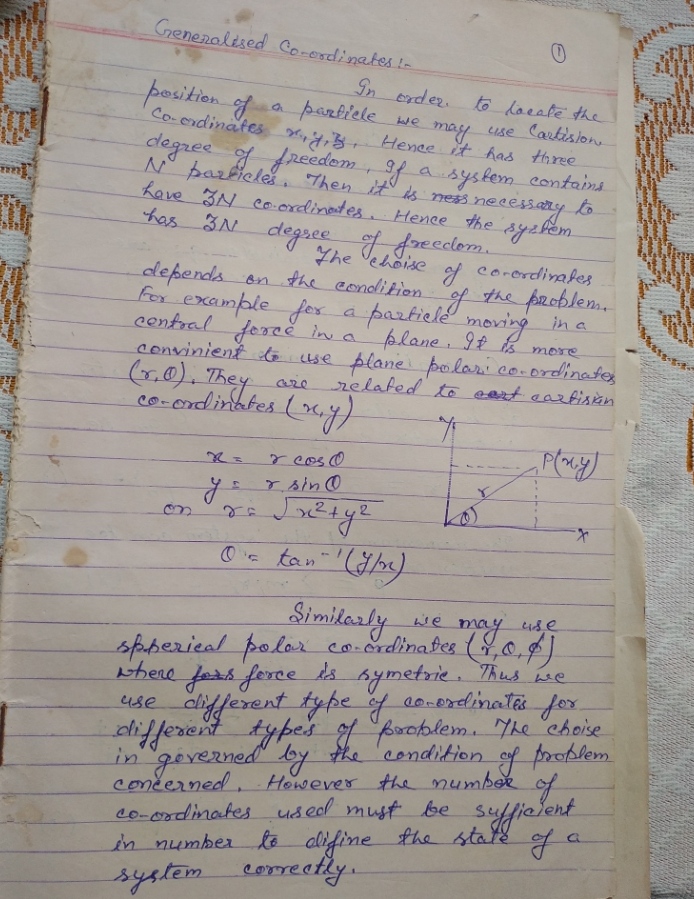 Generalised Co-ordinates:-
1
In order. to Locate the
position of a particle we may use Cartision
Co-ordinates x,y,z. Hence it has three
degree of freedom, If a system contains
N particles. Then it is ness necessary to
have 3N co-ordinates. Hence the system
has 3N degree of freedom.
The choise of co-ordinates
depends on the condition of the problem.
For example for a particle moving in a
central force in a plane. It is more
convinient to use plane polar co-ordinates
(r,θ). They are related to cart cartisian
co-ordinates (x,y)
x = r cosθ
y = r sinθ
on r = √x²+y²
θ = tan⁻¹(y/x)
y
P(x,y)
r
θ
x
Similarly we may use
spherical polar co-ordinates (r,θ,φ)
where fors force is symetric. Thus we
use different type of co-ordinates for
different types of problem. The choise
in governed by the condition of problem
concerned. However the number of
co-ordinates used must be sufficient
in number to difine the state of a
system correctly.